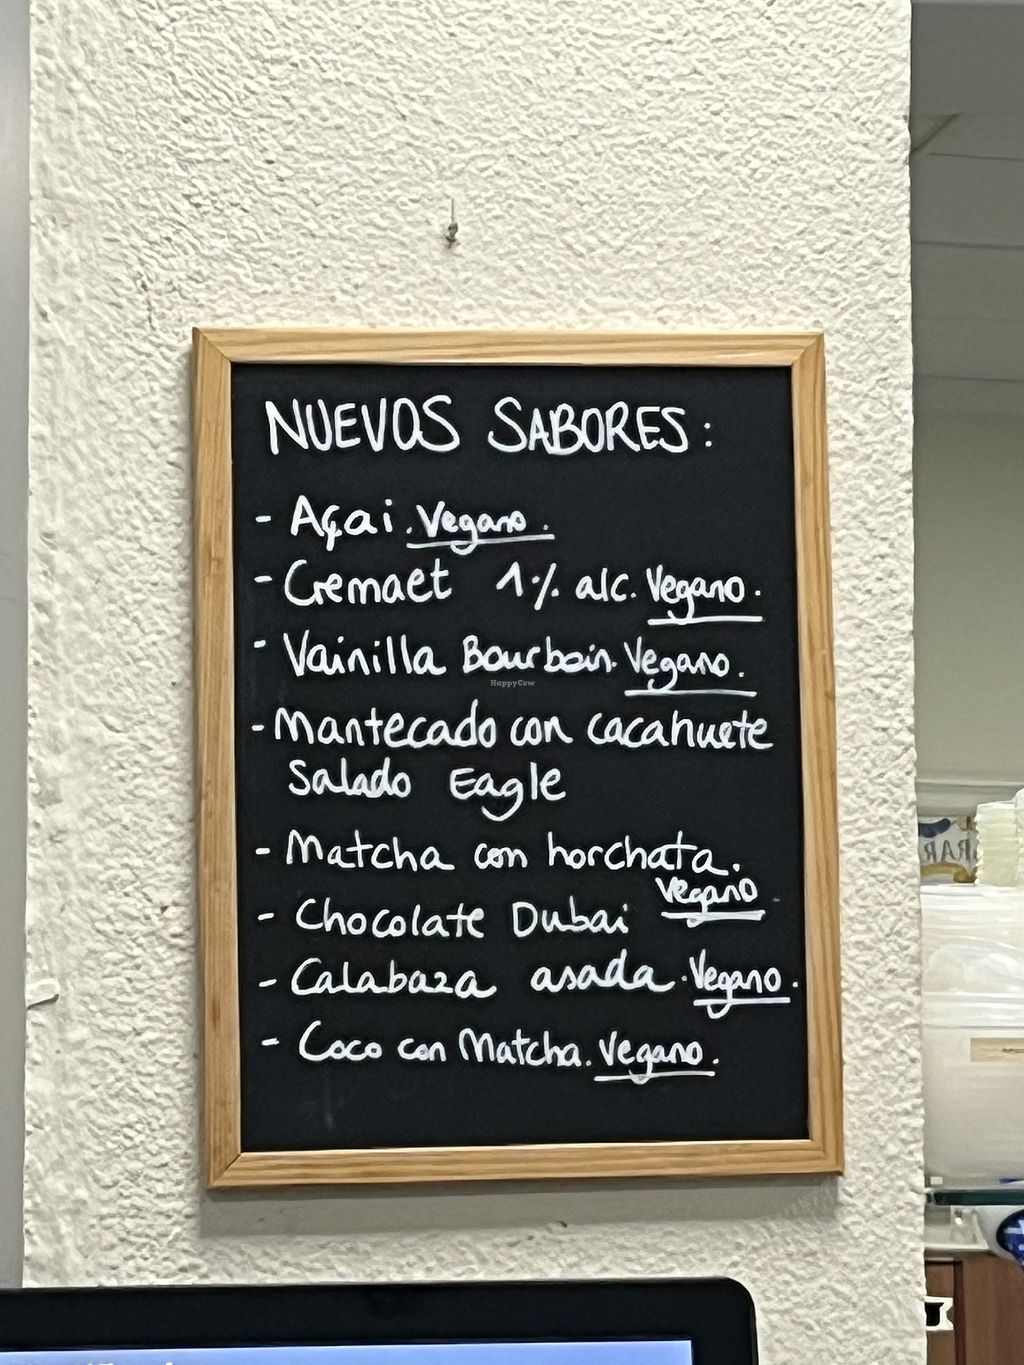 NUEVOS SABORES:
- Açai. Vegano.
- Cremaet 1% alc. Vegano.
- Vainilla Bourboin. Vegano.
HappyCow
- Mantecado con cacahuete
Salado Eagle
- Matcha con horchata.
Vegano
- Chocolate Dubai
- Calabaza asada. Vegano.
- Coco con Matcha. Vegano.